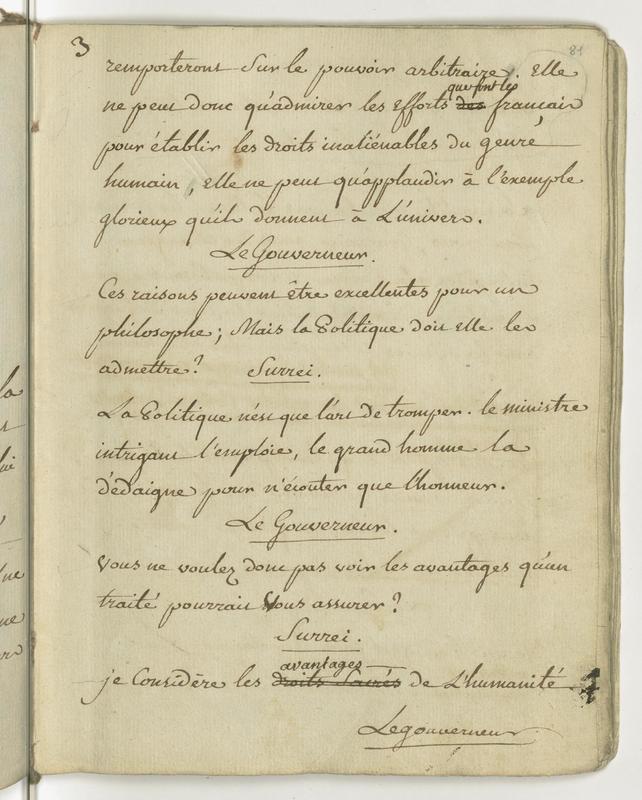 3
81
remporteront sur le pouvoir arbitraire. Elle
que font les
ne peut donc qu'admirer les efforts des français
pour établir les droits inaliénables du genre
humain, elle ne peut qu'applaudir à l'exemple
glorieux qu'ils donnent à L'univers.
Le Gouverneur.
Ces raisons peuvent être excellentes pour un
philosophe; Mais la Politique doit elle les
admettre? Surrei.
La Politique n'est que l'art de tromper. le ministre
intrigant l'emploie, le grand homme la
dédaigne pour n'écouter que l'honneur.
Le Gouverneur.
Vous ne voulez donc pas voir les avantages qu'un
traité pourrait Vous assurer?
Surrei.
avantages
je Considère les droits sacrés de L'humanité
Le gouverneur
la
ne